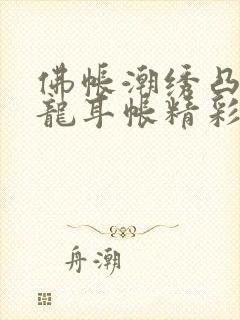 佛帐潮绣凸
龍耳帐精彩
舟潮